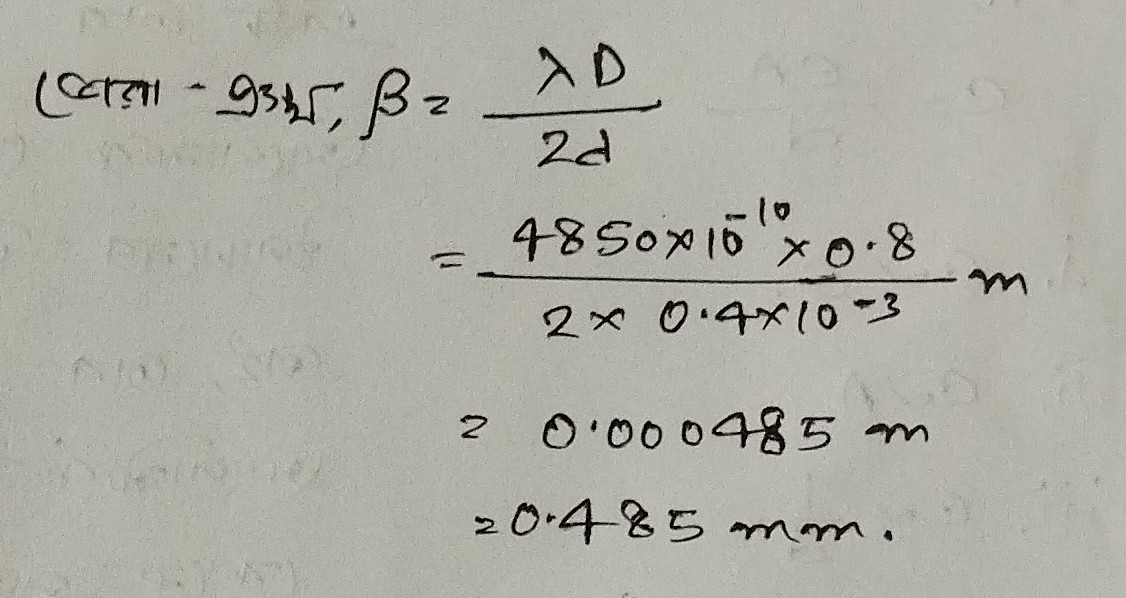 ঝোলা - প্রস্থ, β = λD / 2d
= 4850×10⁻¹⁰ × 0.8 / 2 × 0.4×10⁻³ m
= 0.000485 m
= 0.485 mm.